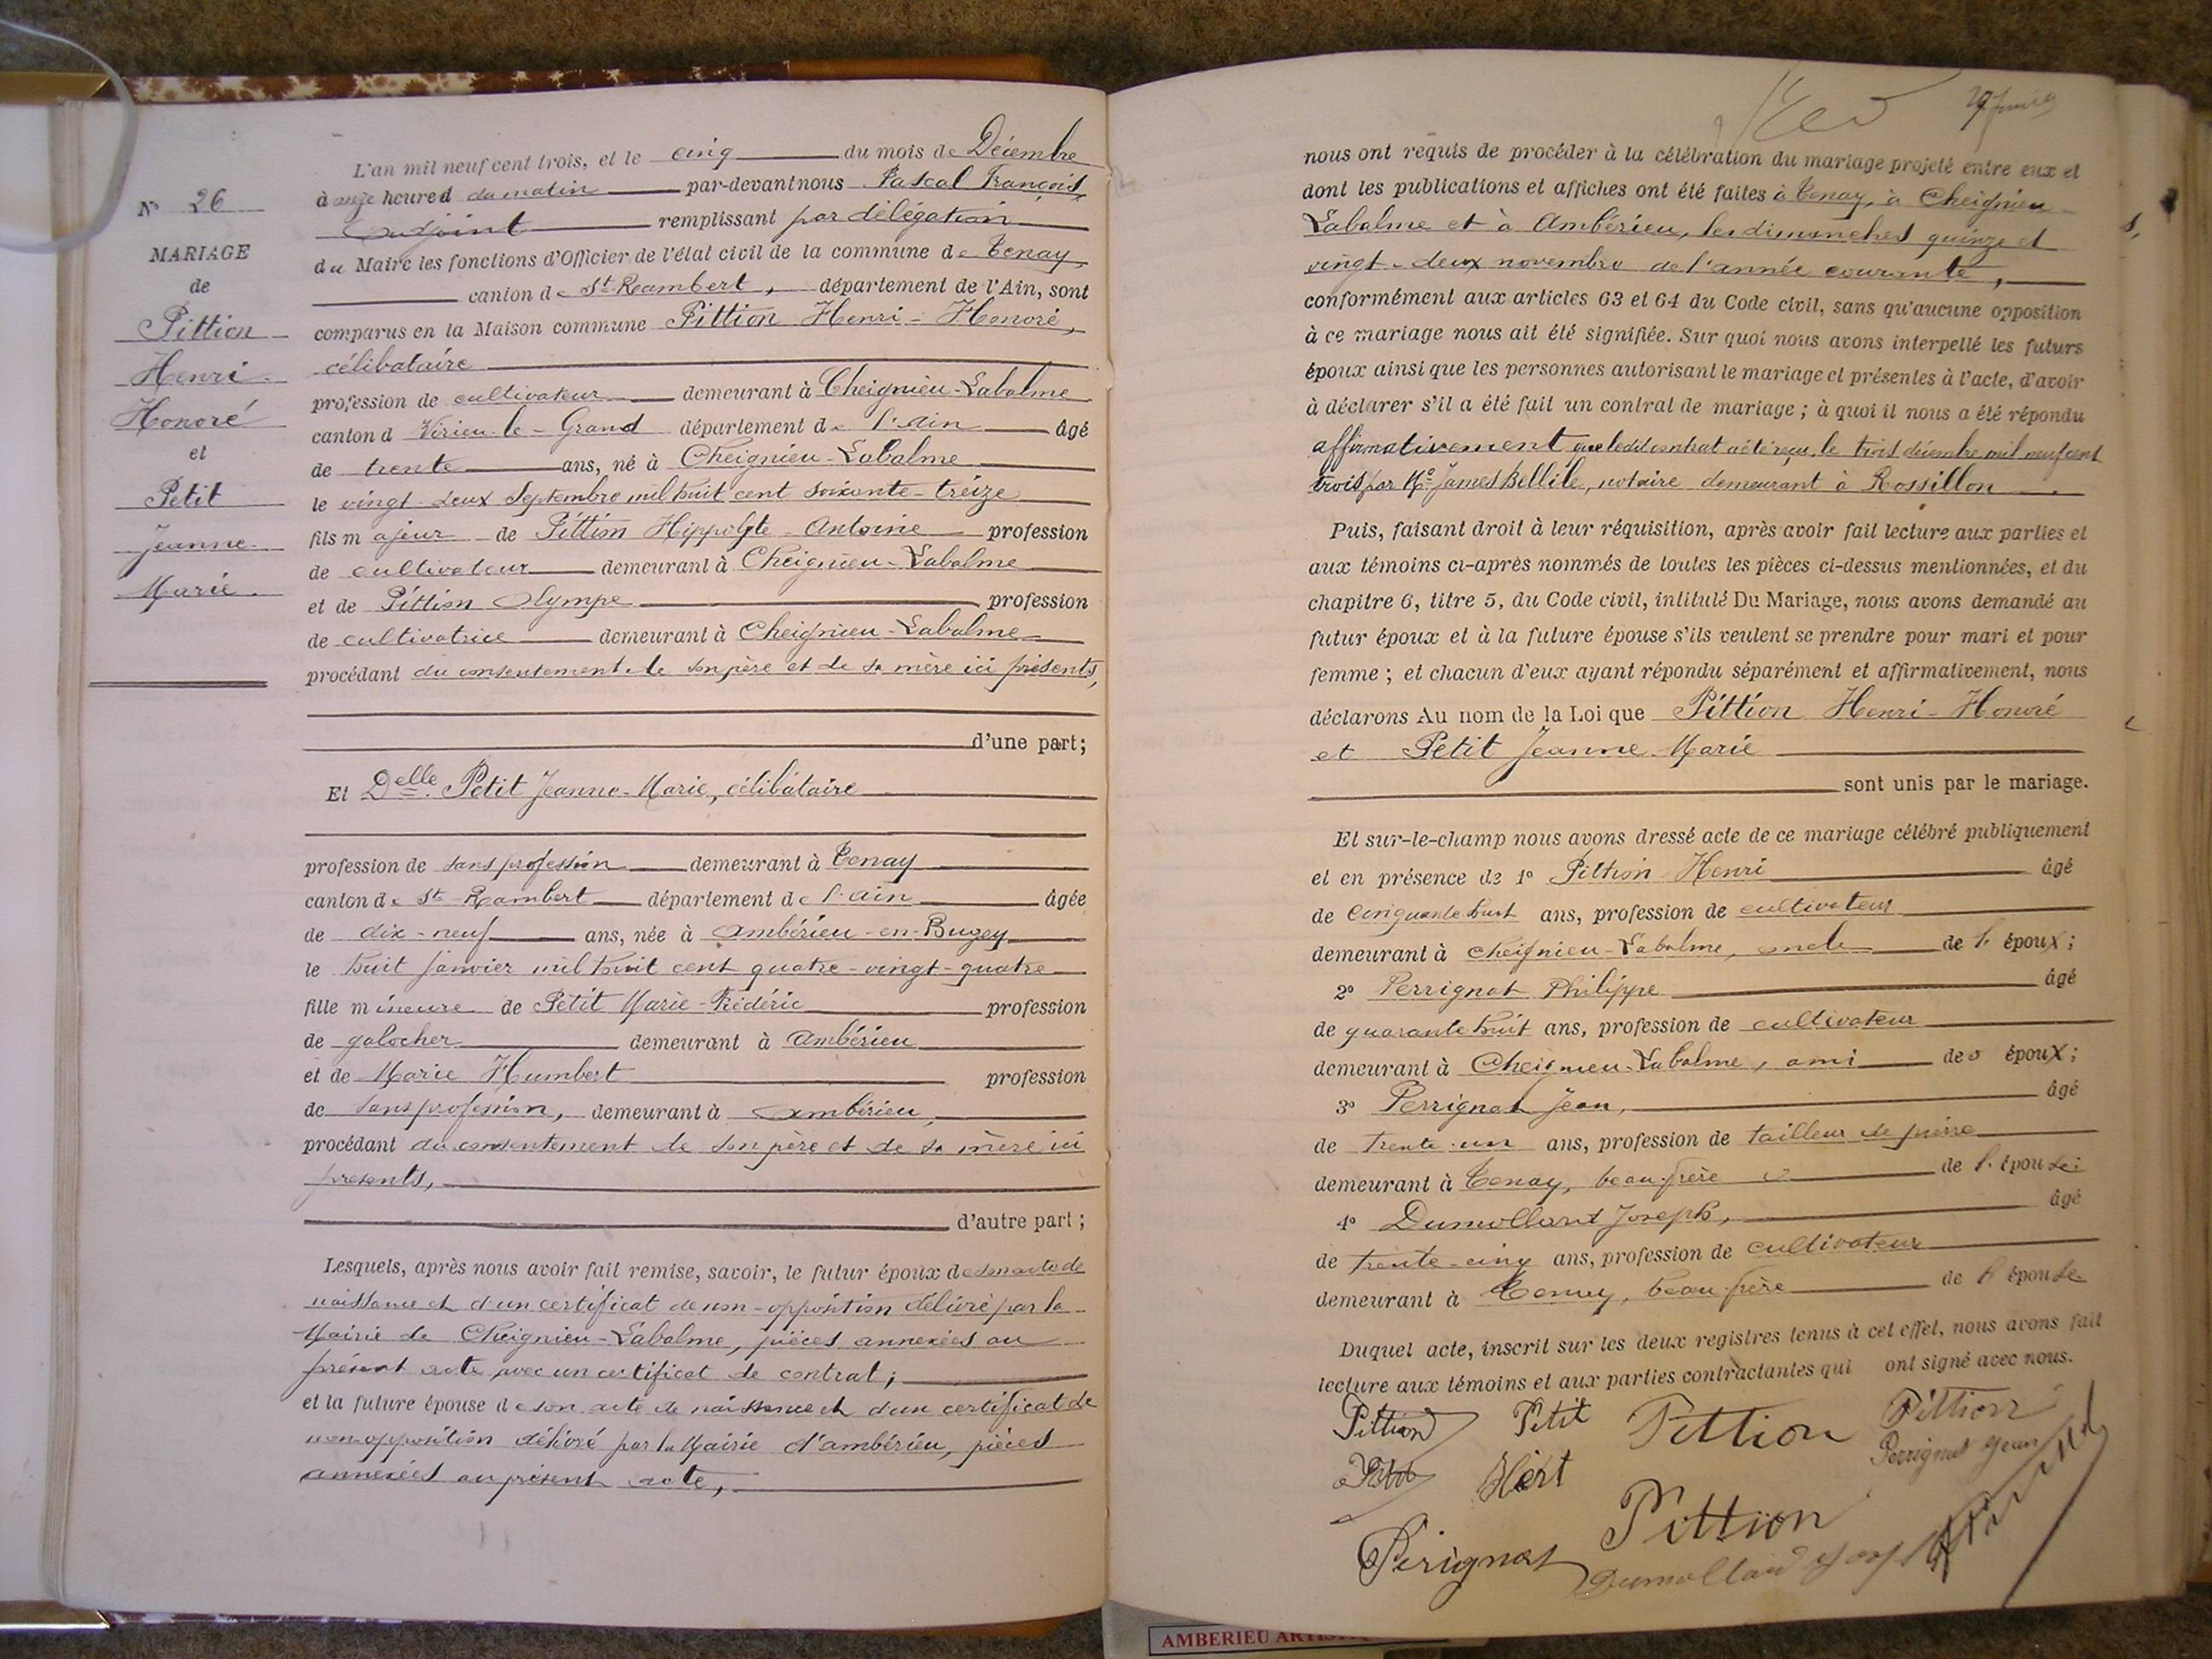 N° 26
MARIAGE
de
Pittion
Henri
Honoré
et
Petit
Jeanne
Marie
L'an mil neuf cent trois, et le cinq du mois de Décembre
à onze heures du matin par-devant nous Pascal François,
adjoint remplissant par délégation
du Maire les fonctions d'Officier de l'état civil de la commune de Tenay,
canton de St-Rambert, département de l'Ain, sont
comparus en la Maison commune Pittion Henri-Honoré,
célibataire
profession de cultivateur demeurant à Cheignieu-Labalme
canton d Virieu-le-Grand département de l'Ain âgé
de trente ans, né à Cheignieu-Labalme
le vingt-deux Septembre mil huit cent soixante-treize
fils majeur de Pittion Hippolyte-Antoine profession
de cultivateur demeurant à Cheignieu-Labalme
et de Pittion Olympe profession
de cultivatrice demeurant à Cheignieu-Labalme
procédant du consentement de son père et de sa mère ici présents,
d'une part;
Et Delle Petit Jeanne-Marie, célibataire
profession de sans profession demeurant à Tenay
canton de St-Rambert département de l'Ain âgée
de dix-neuf ans, née à Ambérieu-en-Bugey
le huit janvier mil huit cent quatre-vingt-quatre
fille mineure de Petit Marie-Frédéric profession
de galocher demeurant à Ambérieu
et de Marie Humbert profession
de sans profession, demeurant à Ambérieu,
procédant du consentement de son père et de sa mère ici
présents,
d'autre part;
Lesquels, après nous avoir fait remise, savoir, le futur époux de son acte de
naissance et d'un certificat de non-opposition délivré par la
Mairie de Cheignieu-Labalme, pièces annexées au
présent acte avec un certificat de contrat;
et la future épouse de son acte de naissance et d'un certificat de
non-opposition délivré par la Mairie d'Ambérieu, pièces
annexées au présent acte,
nous ont requis de procéder à la célébration du mariage projeté entre eux et
dont les publications et affiches ont été faites à Tenay, à Cheignieu
Labalme et à Ambérieu, les dimanches quinze et
vingt-deux novembre de l'année courante,
conformément aux articles 63 et 64 du Code civil, sans qu'aucune opposition
à ce mariage nous ait été signifiée. Sur quoi nous avons interpellé les futurs
époux ainsi que les personnes autorisant le mariage et présentes à l'acte, d'avoir
à déclarer s'il a été fait un contrat de mariage; à quoi il nous a été répondu
affirmativement que ledit contrat a été reçu le trois décembre mil neuf cent
trois par Me James Bellile, notaire demeurant à Rossillon
Puis, faisant droit à leur réquisition, après avoir fait lecture aux parties et
aux témoins ci-après nommés de toutes les pièces ci-dessus mentionnées, et du
chapitre 6, titre 5, du Code civil, intitulé Du Mariage, nous avons demandé au
futur époux et à la future épouse s'ils veulent se prendre pour mari et pour
femme; et chacun d'eux ayant répondu séparément et affirmativement, nous
déclarons Au nom de la Loi que Pittion Henri-Honoré
et Petit Jeanne-Marie
sont unis par le mariage.
Et sur-le-champ nous avons dressé acte de ce mariage célébré publiquement
et en présence de 1° Pittion Henri âgé
de Cinquante huit ans, profession de cultivateur
demeurant à Cheignieu-Labalme, oncle de l'époux;
2° Perrignat Philippe âgé
de quarante huit ans, profession de cultivateur
demeurant à Cheignieu-Labalme, ami des époux;
3° Perrignat Jean, âgé
de trente-un ans, profession de tailleur de pierre
demeurant à Tenay, beau-frère de l'épouse;
4° Dumollard Joseph, âgé
de trente-cinq ans, profession de cultivateur
demeurant à Tenay, beau-frère de l'épouse
Duquel acte, inscrit sur les deux registres tenus à cet effet, nous avons fait
lecture aux témoins et aux parties contractantes qui ont signé avec nous.
Pittion Petit Pittion Pittion
Perrignat Jean
Pittion
Perignat
Dumollard
AMBERIEU